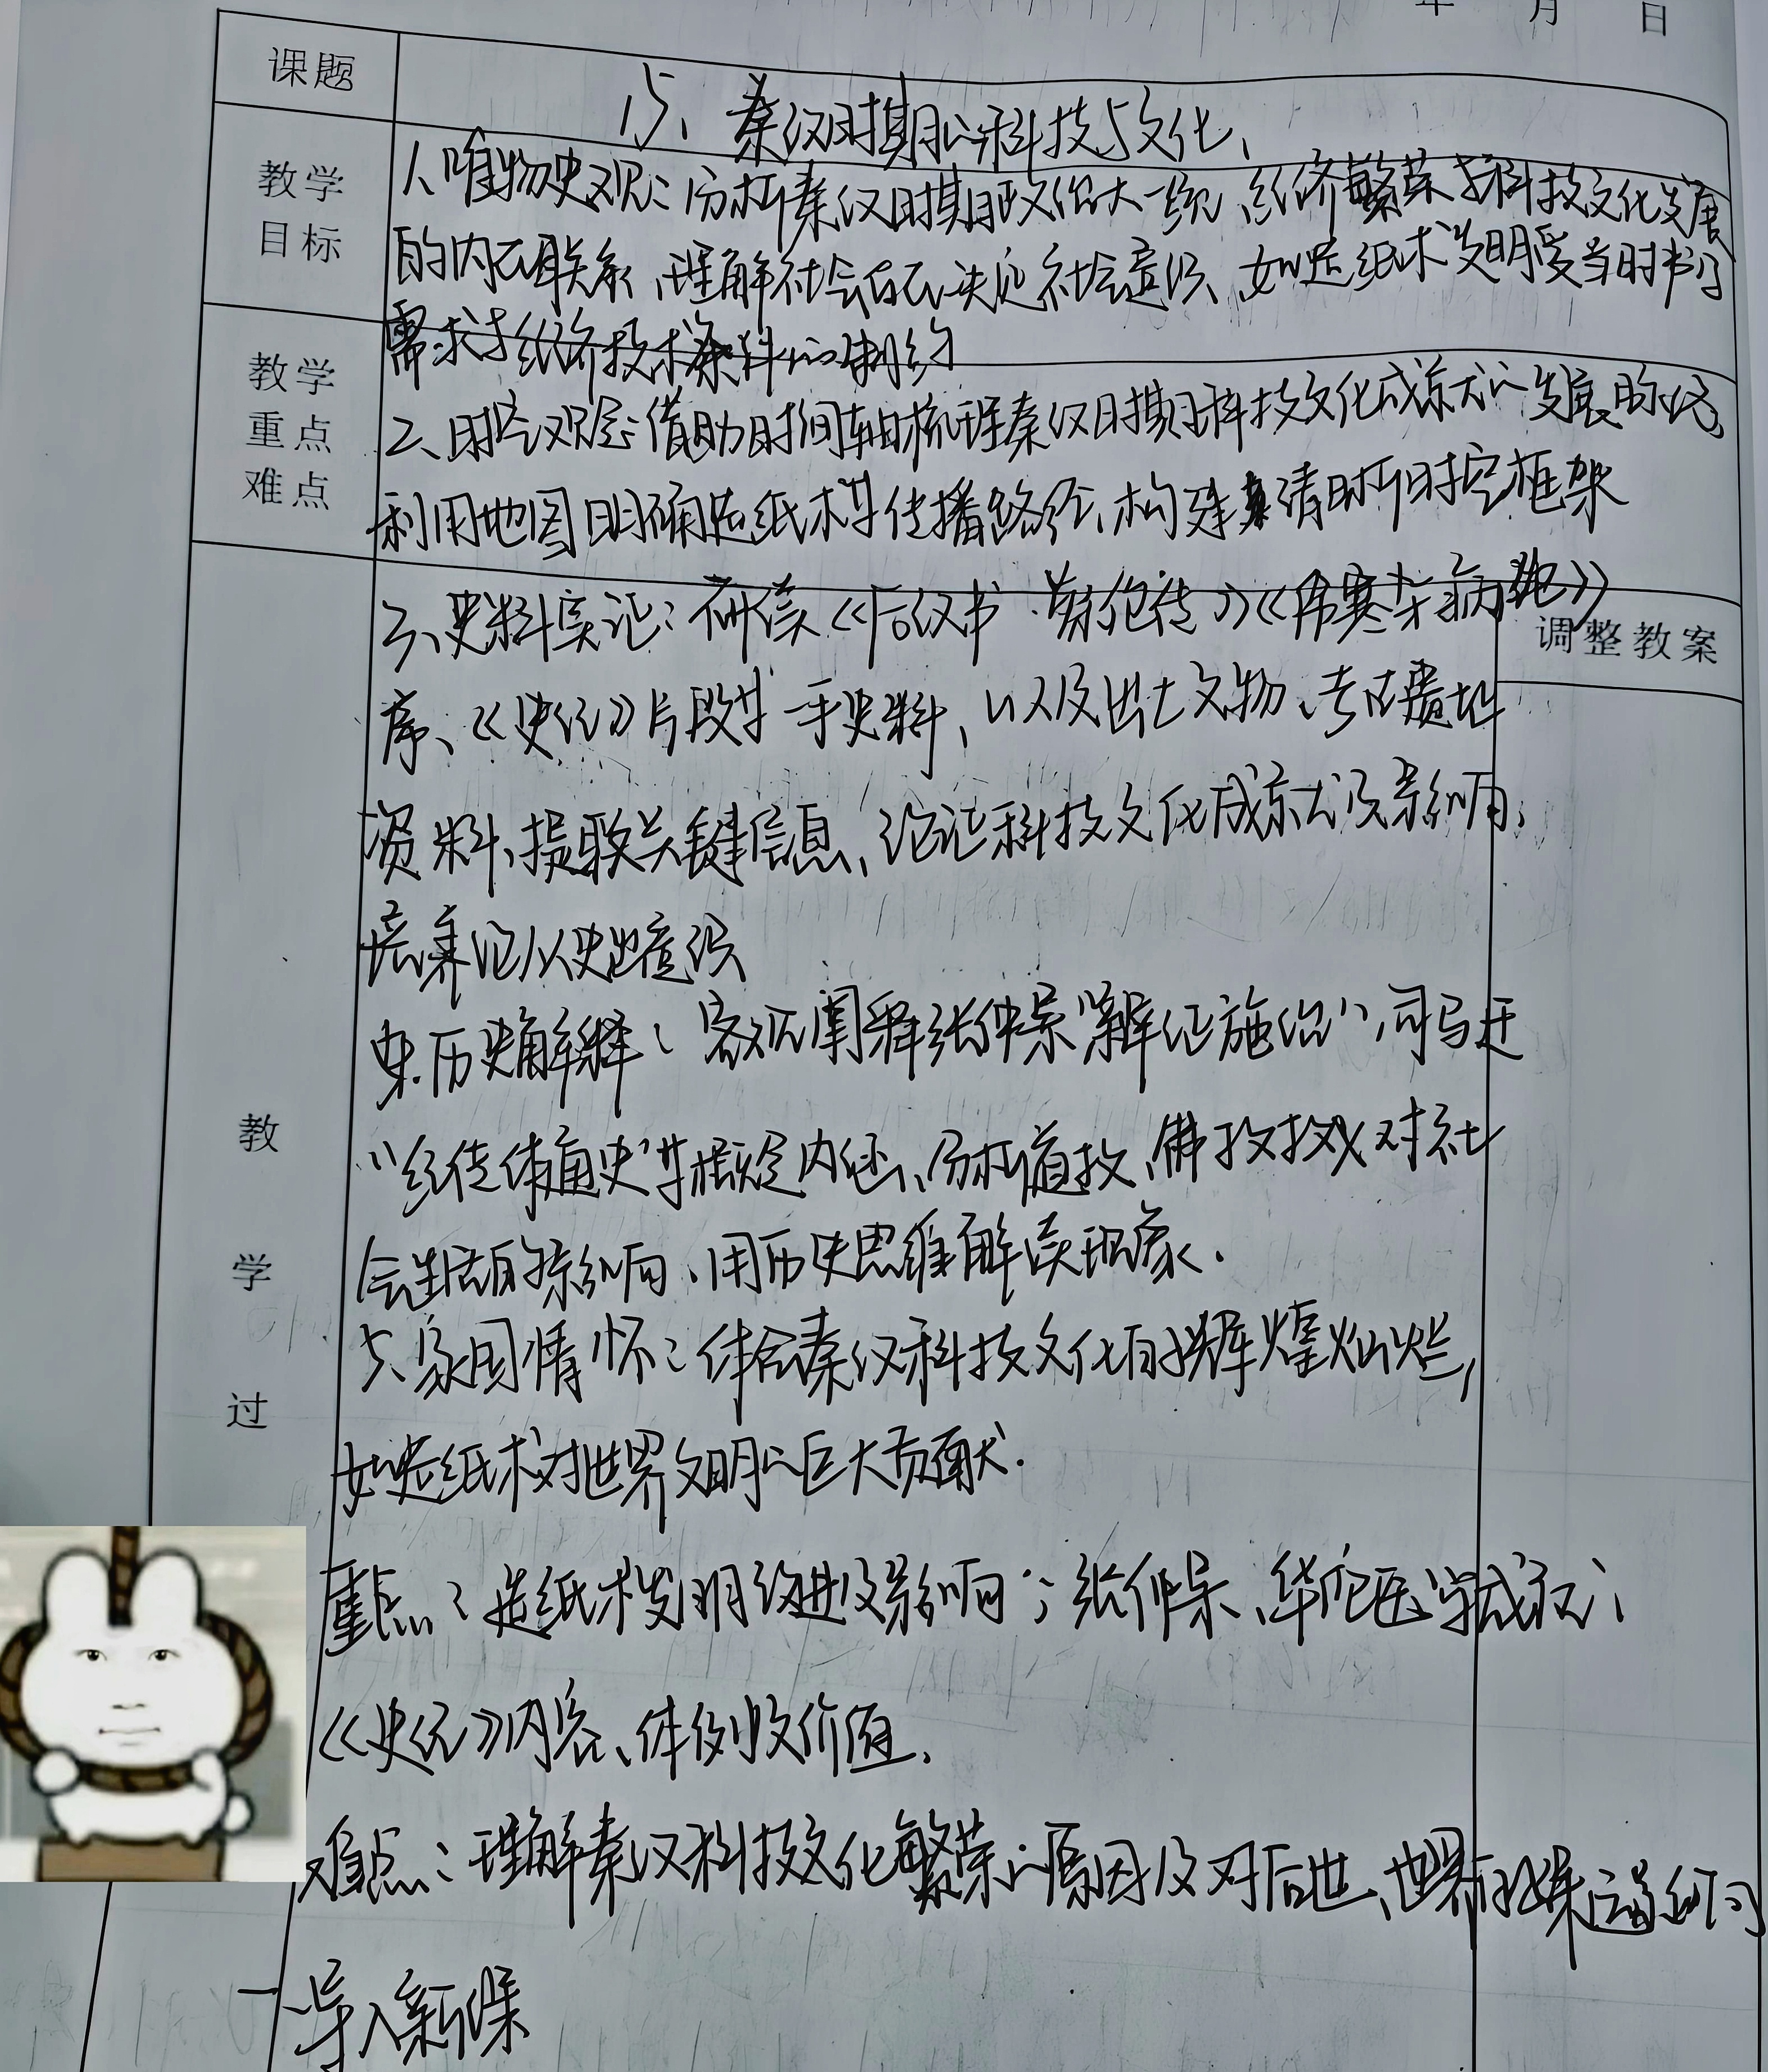 年 月 日
课题
15、秦汉时期的科技与文化、
教学目标
1、唯物史观：分析秦汉时期政治大一统、经济繁荣与科技文化发展
的内在联系、理解社会存在决定社会意识、如造纸术发明受当时书写
需求与经济技术条件的制约
教学重点难点
2、时空观念：借助时间轴梳理秦汉时期科技文化成就的发展脉络
利用地图明确造纸术等传播路径、构建清晰的时空框架
3、史料实证：研读《后汉书·蔡伦传》《伤寒杂病论》
调整教案
序、《史记》片段等一手史料，以及出土文物、考古遗址
资料、提取关键信息、论证科技文化成就及影响、
培养论从史出意识
历史解释：客观阐释张仲景“辨证施治”、司马迁
“纪传体通史”等概念内涵、分析道教、佛教 对社
会生活的影响、用历史思维解读现象.
5、家国情怀：体会秦汉科技文化的辉煌灿烂，
如造纸术对世界文明的巨大贡献.
重点：造纸术发明改进及影响；张仲景、华佗医学成就；
《史记》内容、体例及价值.
难点：理解秦汉科技文化繁荣的原因及对后世、世界的深远影响
一导入新课
教
学
过